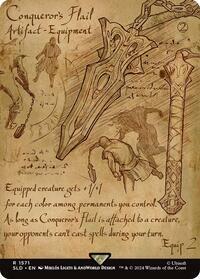 Conqueror's Flail
Artifact - Equipment
2
Equipped creature gets +1/+1
for each color among permanents you control.
As long as Conqueror's Flail is attached to a creature,
your opponents can't cast spells during your turn.
Equip 2
R 1571
SLD • EN MIKLÓS LIGETI & ANOWORLD DESIGN
™ & © 2024 Wizards of the Coast
© Ubisoft